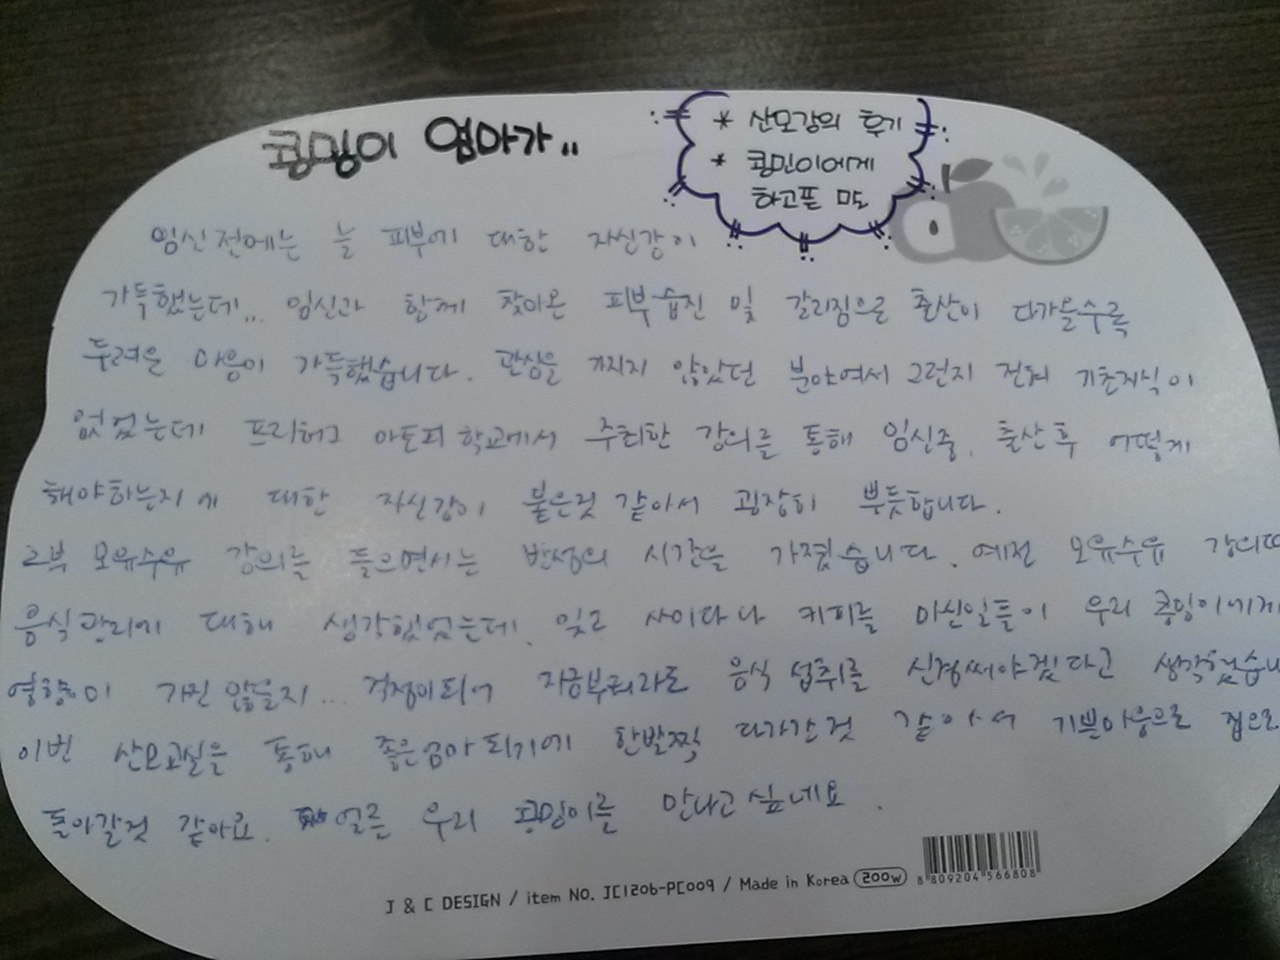 콩밍이 엄마가..
* 산모강의 후기
* 콩민이에게
하고픈 말도
임신전에는 늘 피부에 대한 자신감이
가득했는데... 임신과 함께 찾아온 피부습진 및 갈라짐으로 출산이 다가올수록
두려운 마음이 가득했습니다. 관심을 가지지 않았던 분야여서 그런지 전혀 기초지식이
없었는데 프리허그 아토피 학교에서 주최한 강의를 통해 임신중, 출산후 어떻게
해야하는지에 대한 자신감이 붙은것 같아서 굉장히 뿌듯합니다.
2부 모유수유 강의를 들으면서는 반성의 시간을 가졌습니다. 예전 모유수유 강의때
음식관리에 대해 생각했었는데, 잊고 사이다나 커피를 마신일들이 우리 콩밍이에게
영향이 가진 않을지... 걱정이되어 지금부터라도 음식 섭취를 신경써야겠다고 생각했습니
이번 산모교실을 통해 좋은엄마 되기에 한발짝 다가간것 같아서 기쁜마음으로 집으로
돌아갈것 같아요. 얼른 우리 콩밍이를 만나고 싶네요.
J & C DESIGN / item NO. JC1206-PC009 / Made in Korea 200w
8 809204 566808